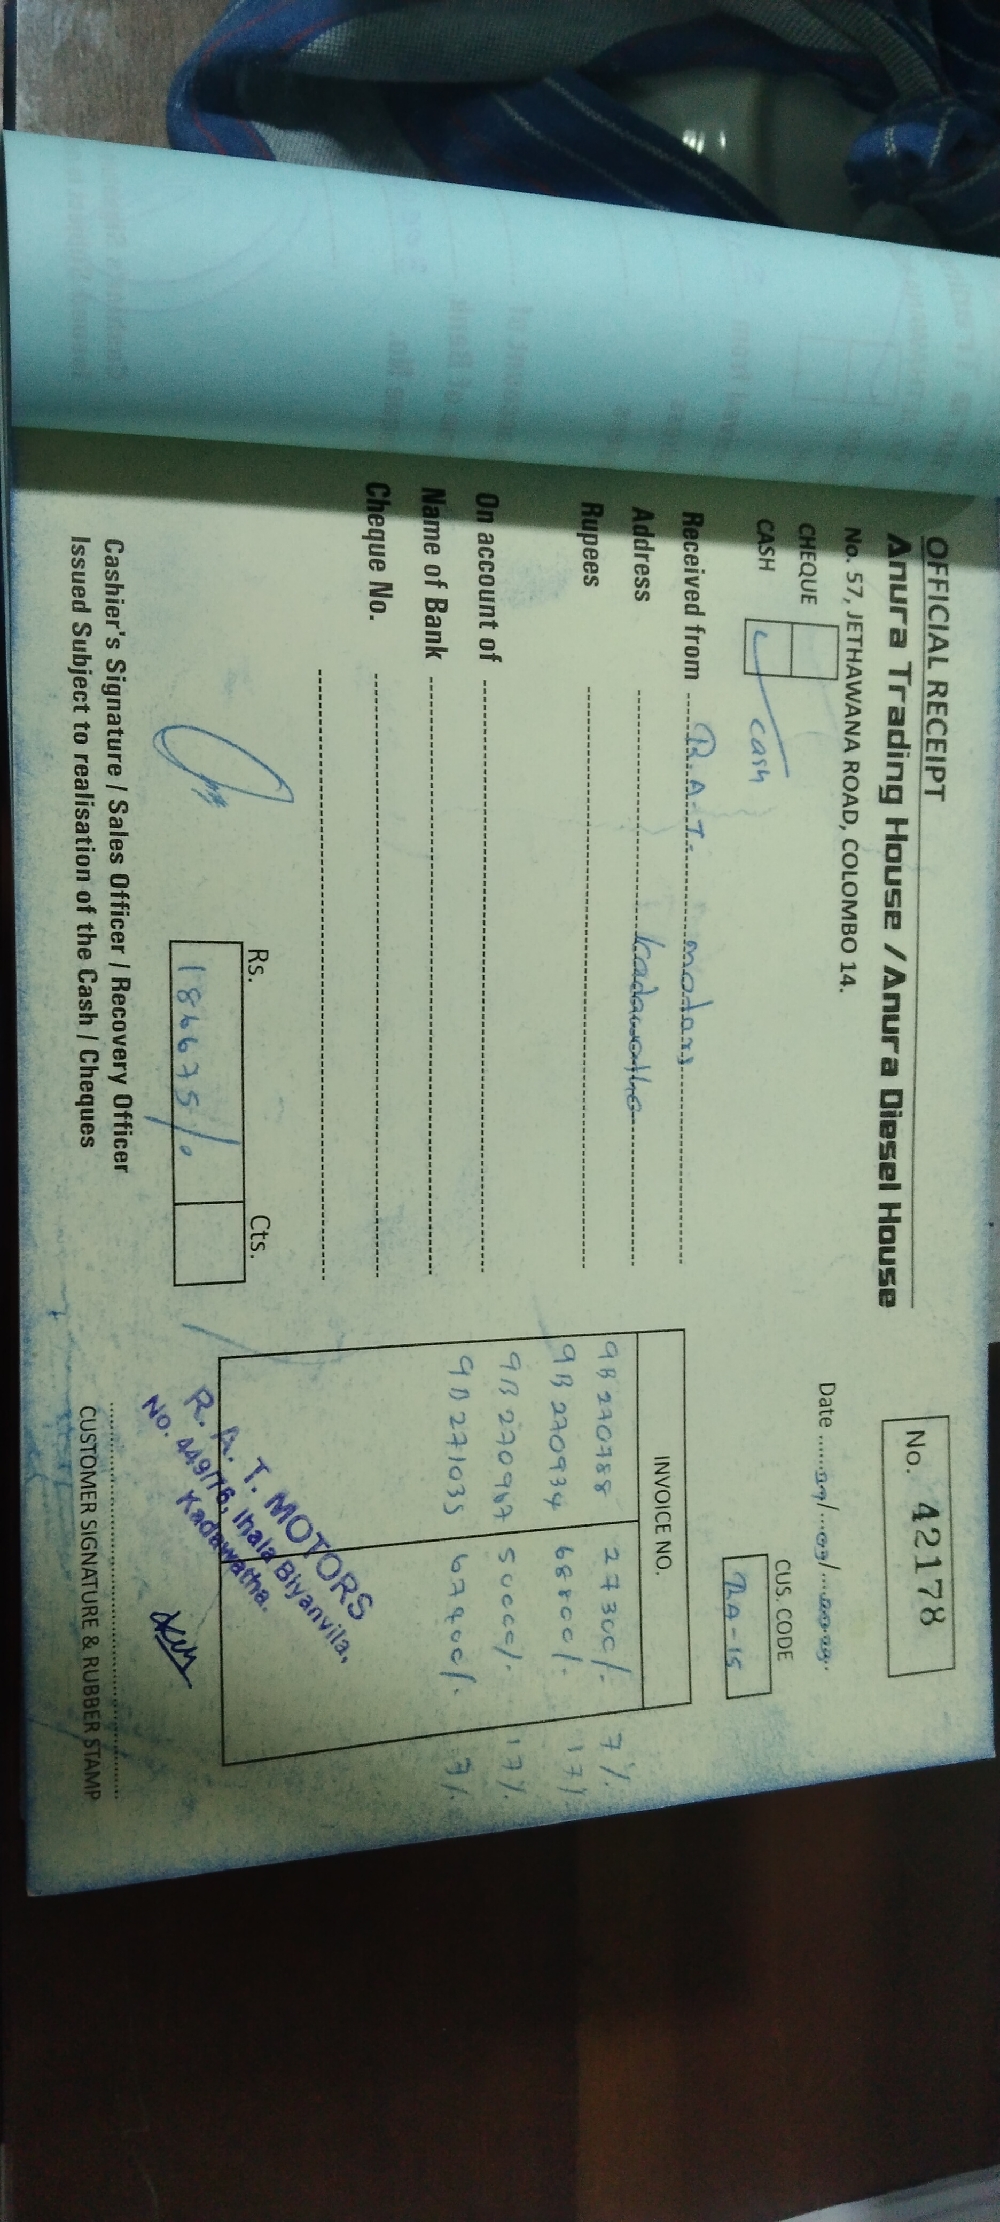 OFFICIAL RECEIPT
Anura Trading House / Anura Diesel House
No. 57, JETHAWANA ROAD, COLOMBO 14.
No. 42178
CHEQUE
CASH cash
Date
CUS. CODE
RA-15
Received from R.A.T. motors
Address kadawatha
Rupees
On account of
Name of Bank
Cheque No.
INVOICE NO.
9B 270788 27300/- 7%
9B 270934 68800/- 17%
9B 270967 50000/- 17%
9B 271035 67900/- 7%
Rs. Cts.
186675/-
R. A. T. MOTORS
No. 449/76, Ihala Biyanvila,
Kadawatha.
Cashier's Signature / Sales Officer / Recovery Officer
Issued Subject to realisation of the Cash / Cheques
CUSTOMER SIGNATURE & RUBBER STAMP